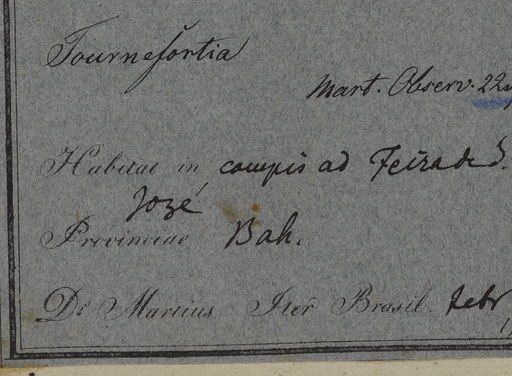 Tournefortia
Mart. Observ. 22
Habitat in campis ad Feira de S.
Jozé
Provinciae Bah.
Dr. Martius Iter Brasil. Febr